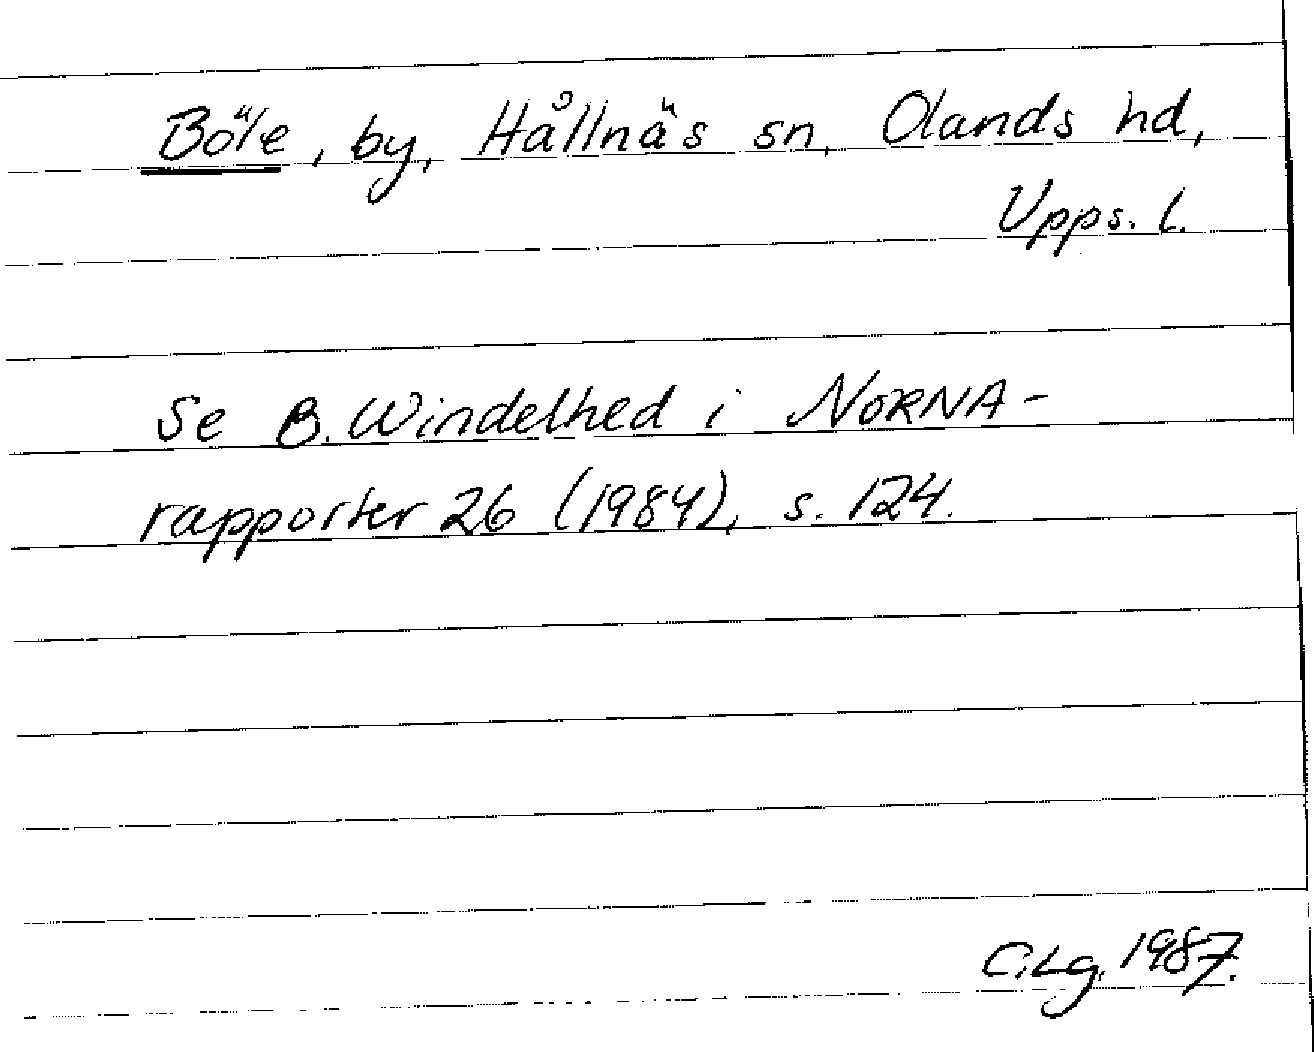 Böle, by, Hållnäs sn, Olands hd,
Upps. l.
Se B. Windelhed i NORNA-
rapporter 26 (1984), s. 124.
C.Lg. 1987.